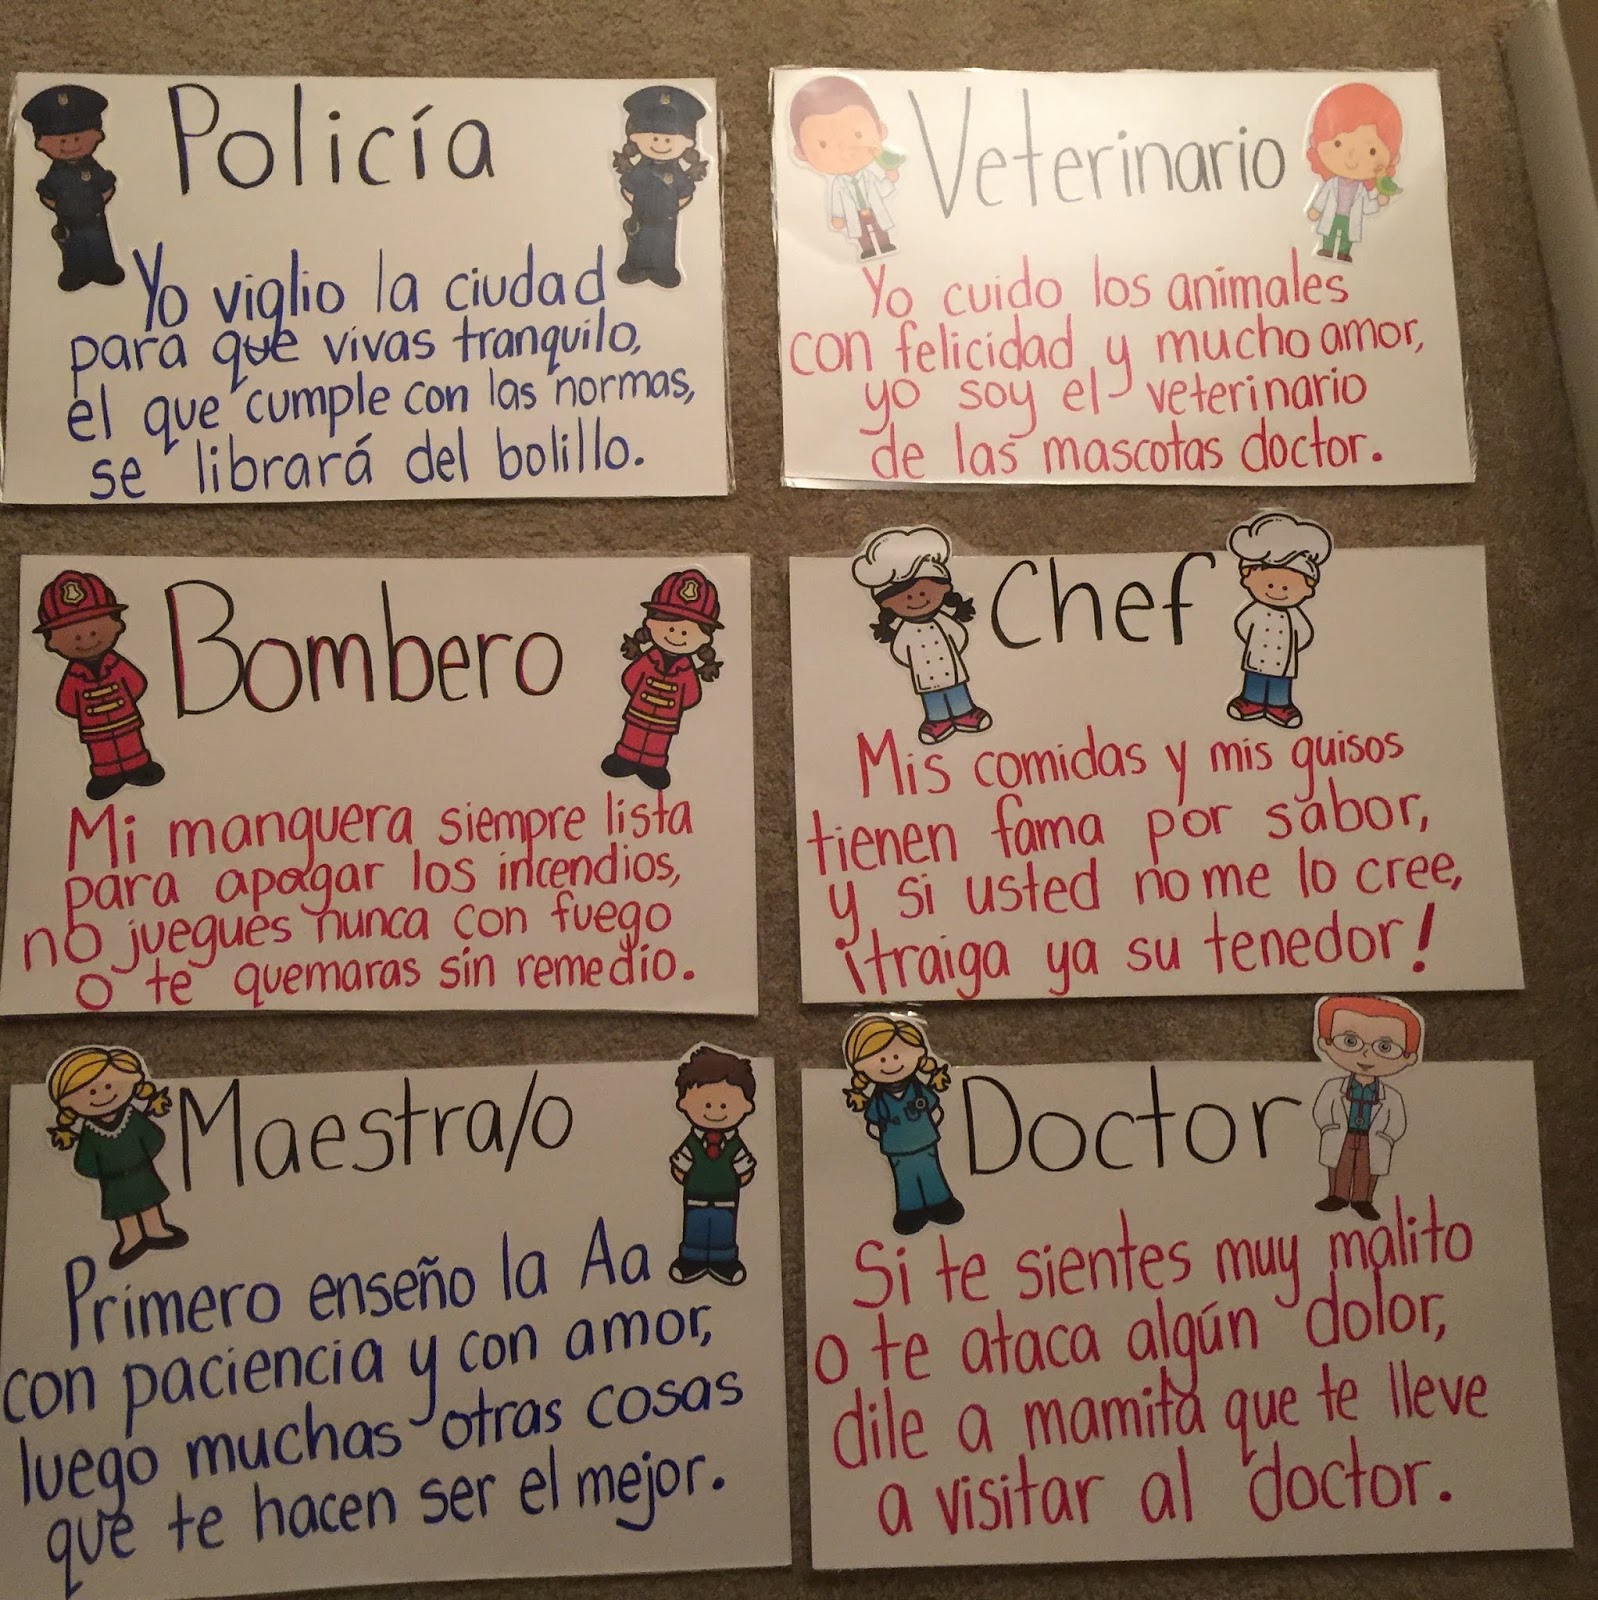 Policía
Yo viglio la ciudad
para que vivas tranquilo,
el que cumple con las normas,
se librará del bolillo.
Veterinario
Yo cuido los animales
con felicidad y mucho amor,
yo soy el veterinario
de las mascotas doctor.
Bombero
Mi manguera siempre lista
para apagar los incendios,
no juegues nunca con fuego
o te quemaras sin remedio.
Chef
Mis comidas y mis guisos
tienen fama por sabor,
y si usted no me lo cree,
¡traiga ya su tenedor!
Maestra/o
Primero enseño la Aa
con paciencia y con amor,
luego muchas otras cosas
que te hacen ser el mejor.
Doctor
Si te sientes muy malito
o te ataca algún dolor,
dile a mamita que te lleve
a visitar al doctor.